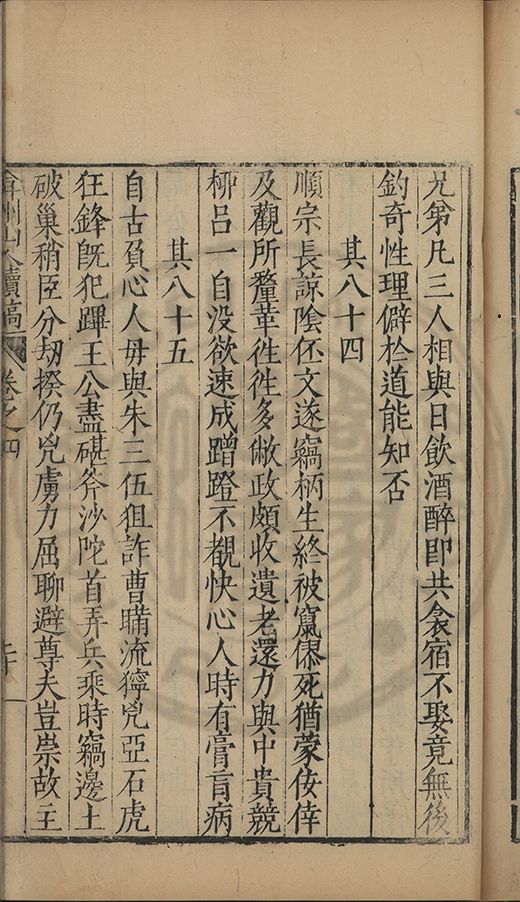 兄弟凡三人相與日飲酒醉即共衾宿不娶竟無後
釣奇性理僻於道能知否
其八十四
順宗長諒陰伾文遂竊柄生終被竄僇死猶蒙佞倖
及觀所釐革徃徃多敝政頗收遺老還力與中貴競
柳呂一自没欲速成蹭蹬不覩快心人時有膏盲病
其八十五
自古負心人毋與朱三伍狙詐曹瞞流獰兇亞石虎
狂鋒旣犯蹕王公盡碪斧沙陀首弄兵乘時竊邊土
破巢稍臣分刼揆仍兇虜力屈聊避尊夫豈崇故主
弇州山人續稿 卷之四